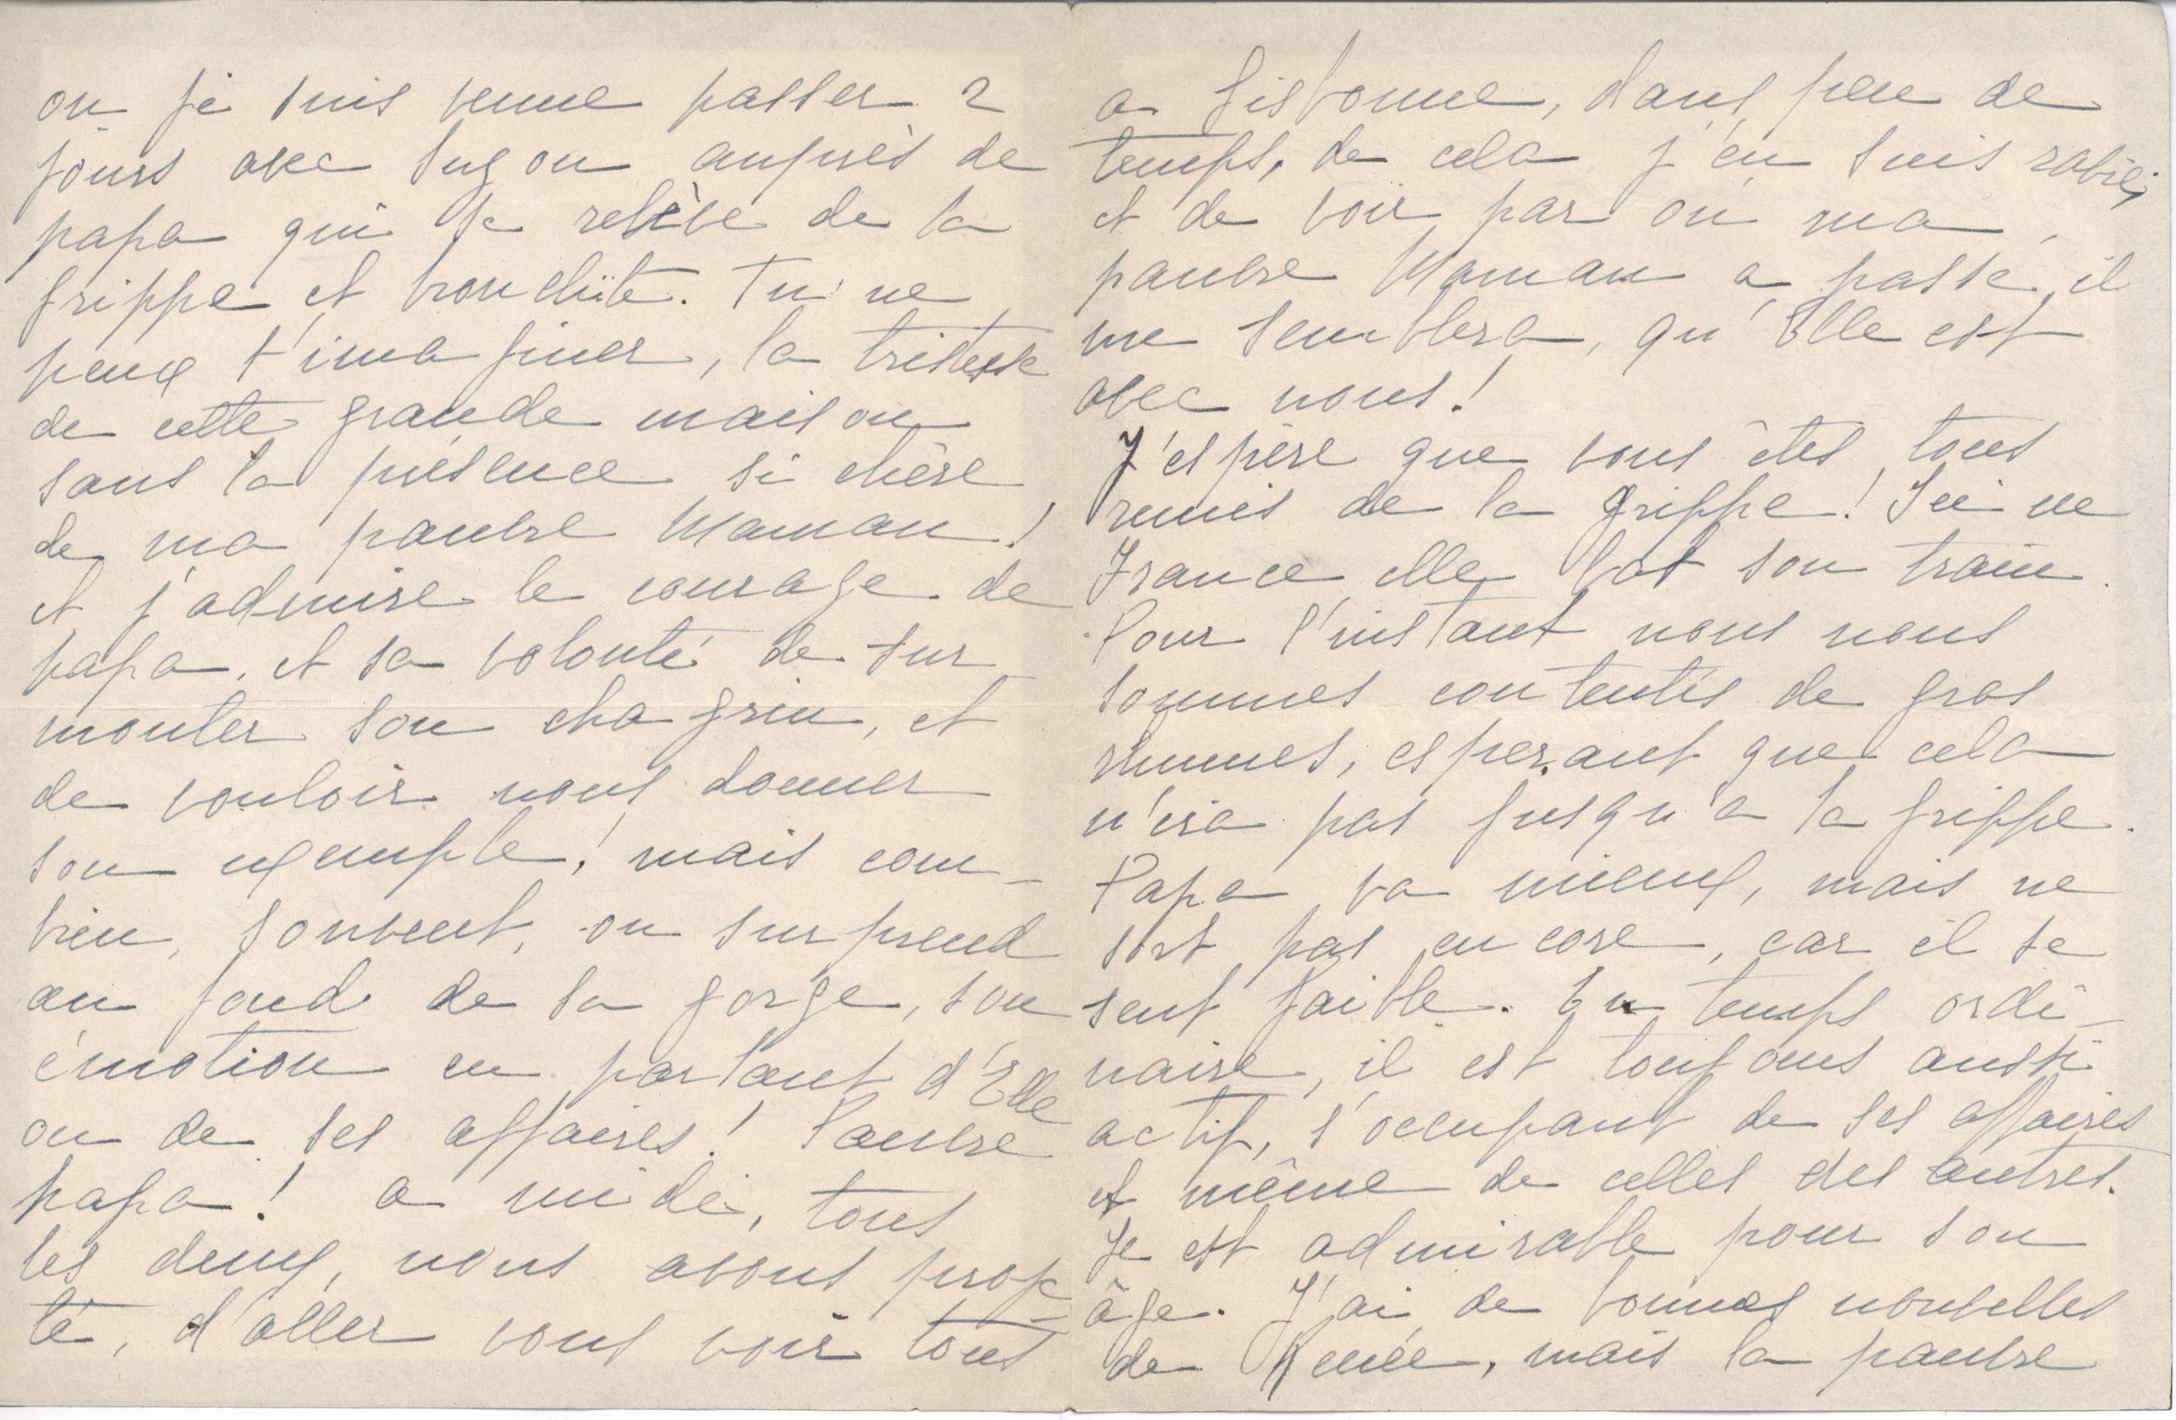 ou je suis venue passer 2
jours avec Suzon auprès de
papa qui se relève de la
grippe et bronchite. Tu ne
peux t'imaginer, la tristesse
de cette grande maison
sans la présence si chère
de ma pauvre Maman!
et j'admire le courage de
papa, et sa volonté de sur
monter son chagrin, et
de vouloir nous donner
son exemple! mais com-
bien, souvent, on surprend
au fond de sa gorge, son
émotion en parlant d'Elle
ou de ses affaires! Pauvre
papa! a midi, tous
les deux, nous avons proje
té, d'aller vous voir tous
a Lisbonne, dans peu de
temps, de cela j'en suis ravie,
et de voir par où ma
pauvre Maman a passé, il
me semblera, qu'Elle est
avec nous!
J'espère que vous êtes tous
remis de la grippe! Ici en
France elle bat son train.
Pour l'instant nous nous
sommes contentés de gros
rhumes, esperant que cela
n'ira pas jusqu'a la grippe.
Papa va mieux, mais ne
sort pas encore, car il se
sent faible. En temps ordi-
naire, il est toujours aussi
actif, s'occupant de ses affaires
et même de celles des autres.
Je est admirable pour son
âge. J'ai de bonnes nouvelles
de Renée, mais la pauvre